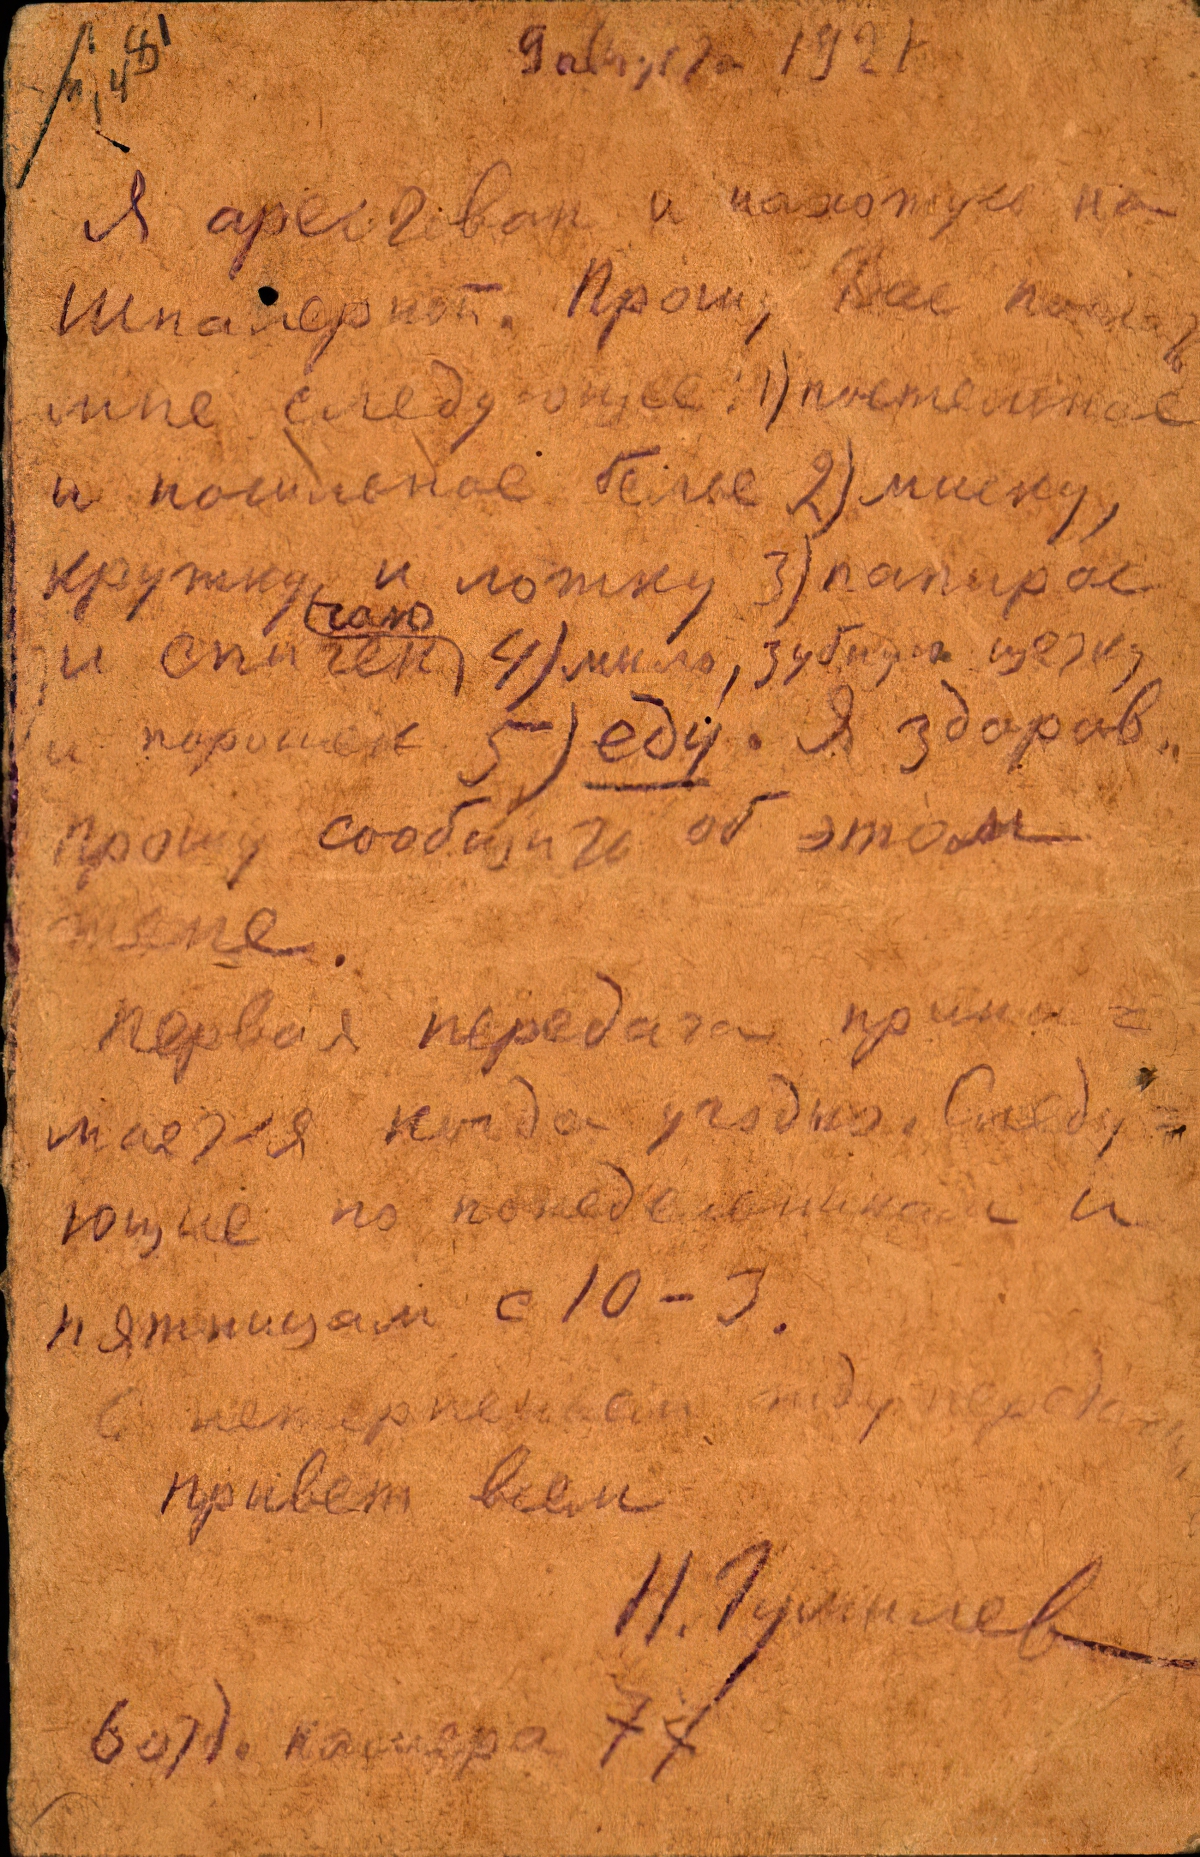 9 августа 1921
Я арестован и нахожусь на
Шпалерной. Прошу Вас послать
мне следующее: 1) постельное
и носильное белье 2) миску,
кружку и ложку 3) папирос
и спичек, чаю 4) мыло, зубную щетку
и порошек 5) еду. Я здоров.
Прошу сообщить об этом
жене.
Первая передача прини=
мается когда угодно. Следу=
ющие по понедельникам и
пятницам с 10–3.
С нетерпением жду передачу
Привет всем
Н. Гумилев
6 отд. камера 77